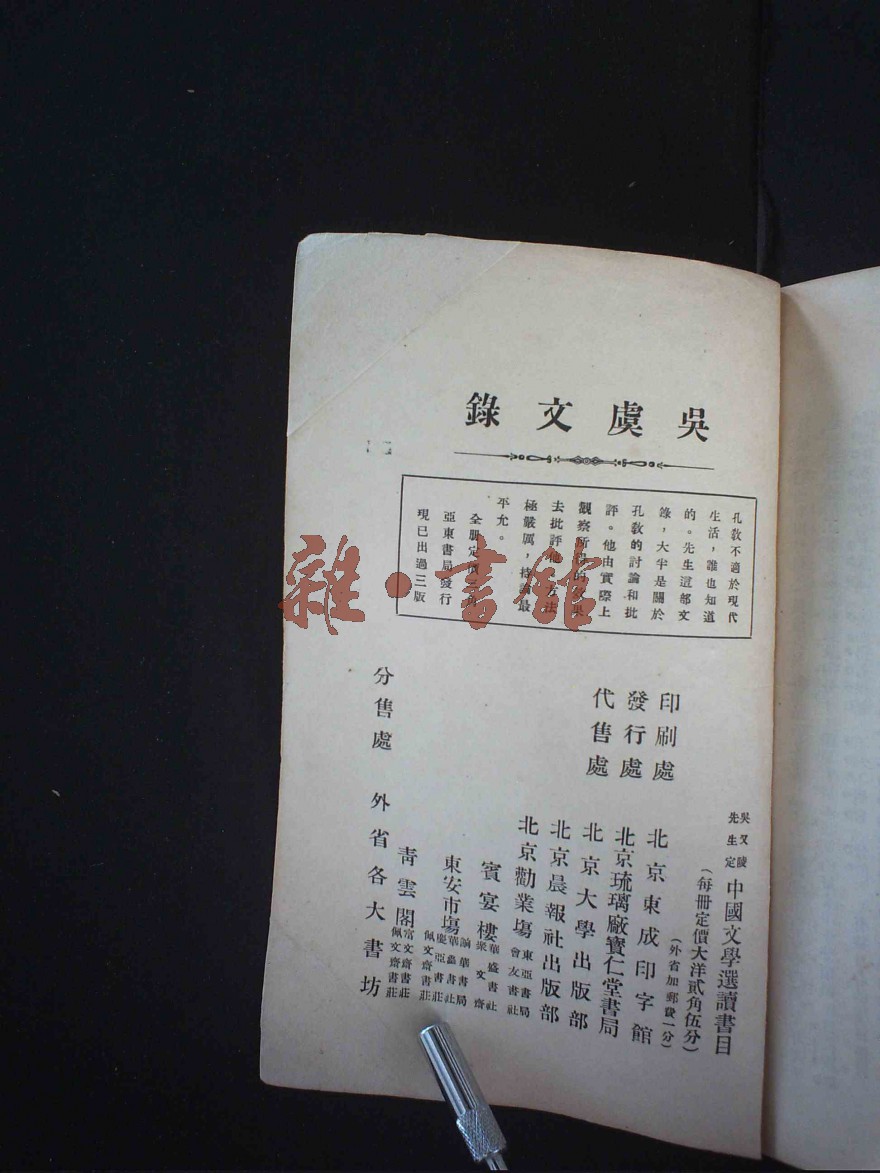 吳虞文錄
孔敎不適於現代
生活，誰也知道
的。先生這部文
錄，大半是關於
孔敎的討論和批
評。他由實際上
觀察所得的效果
去批評他，方法
極嚴厲，持論最
平允。
全册定價 角
亞東書局發行
現已出過三版
吳又陵
先生定
中國文學選讀書目
（每冊定價大洋貳角伍分）
（外省加郵費一分）
印刷處 北京東成印字館
發行處 北京琉璃廠寶仁堂書局
代售處 北京大學出版部
北京晨報社出版部
北京勸業塲
東亞書局
會友書社
賓宴樓
華盛書社
聚文齋
東安市塲
華書局
華書社
亞書莊
佩文齋書莊
靑雲閣
富文齋書莊
佩文齋書莊
分售處 外省各大書坊
雜·書館